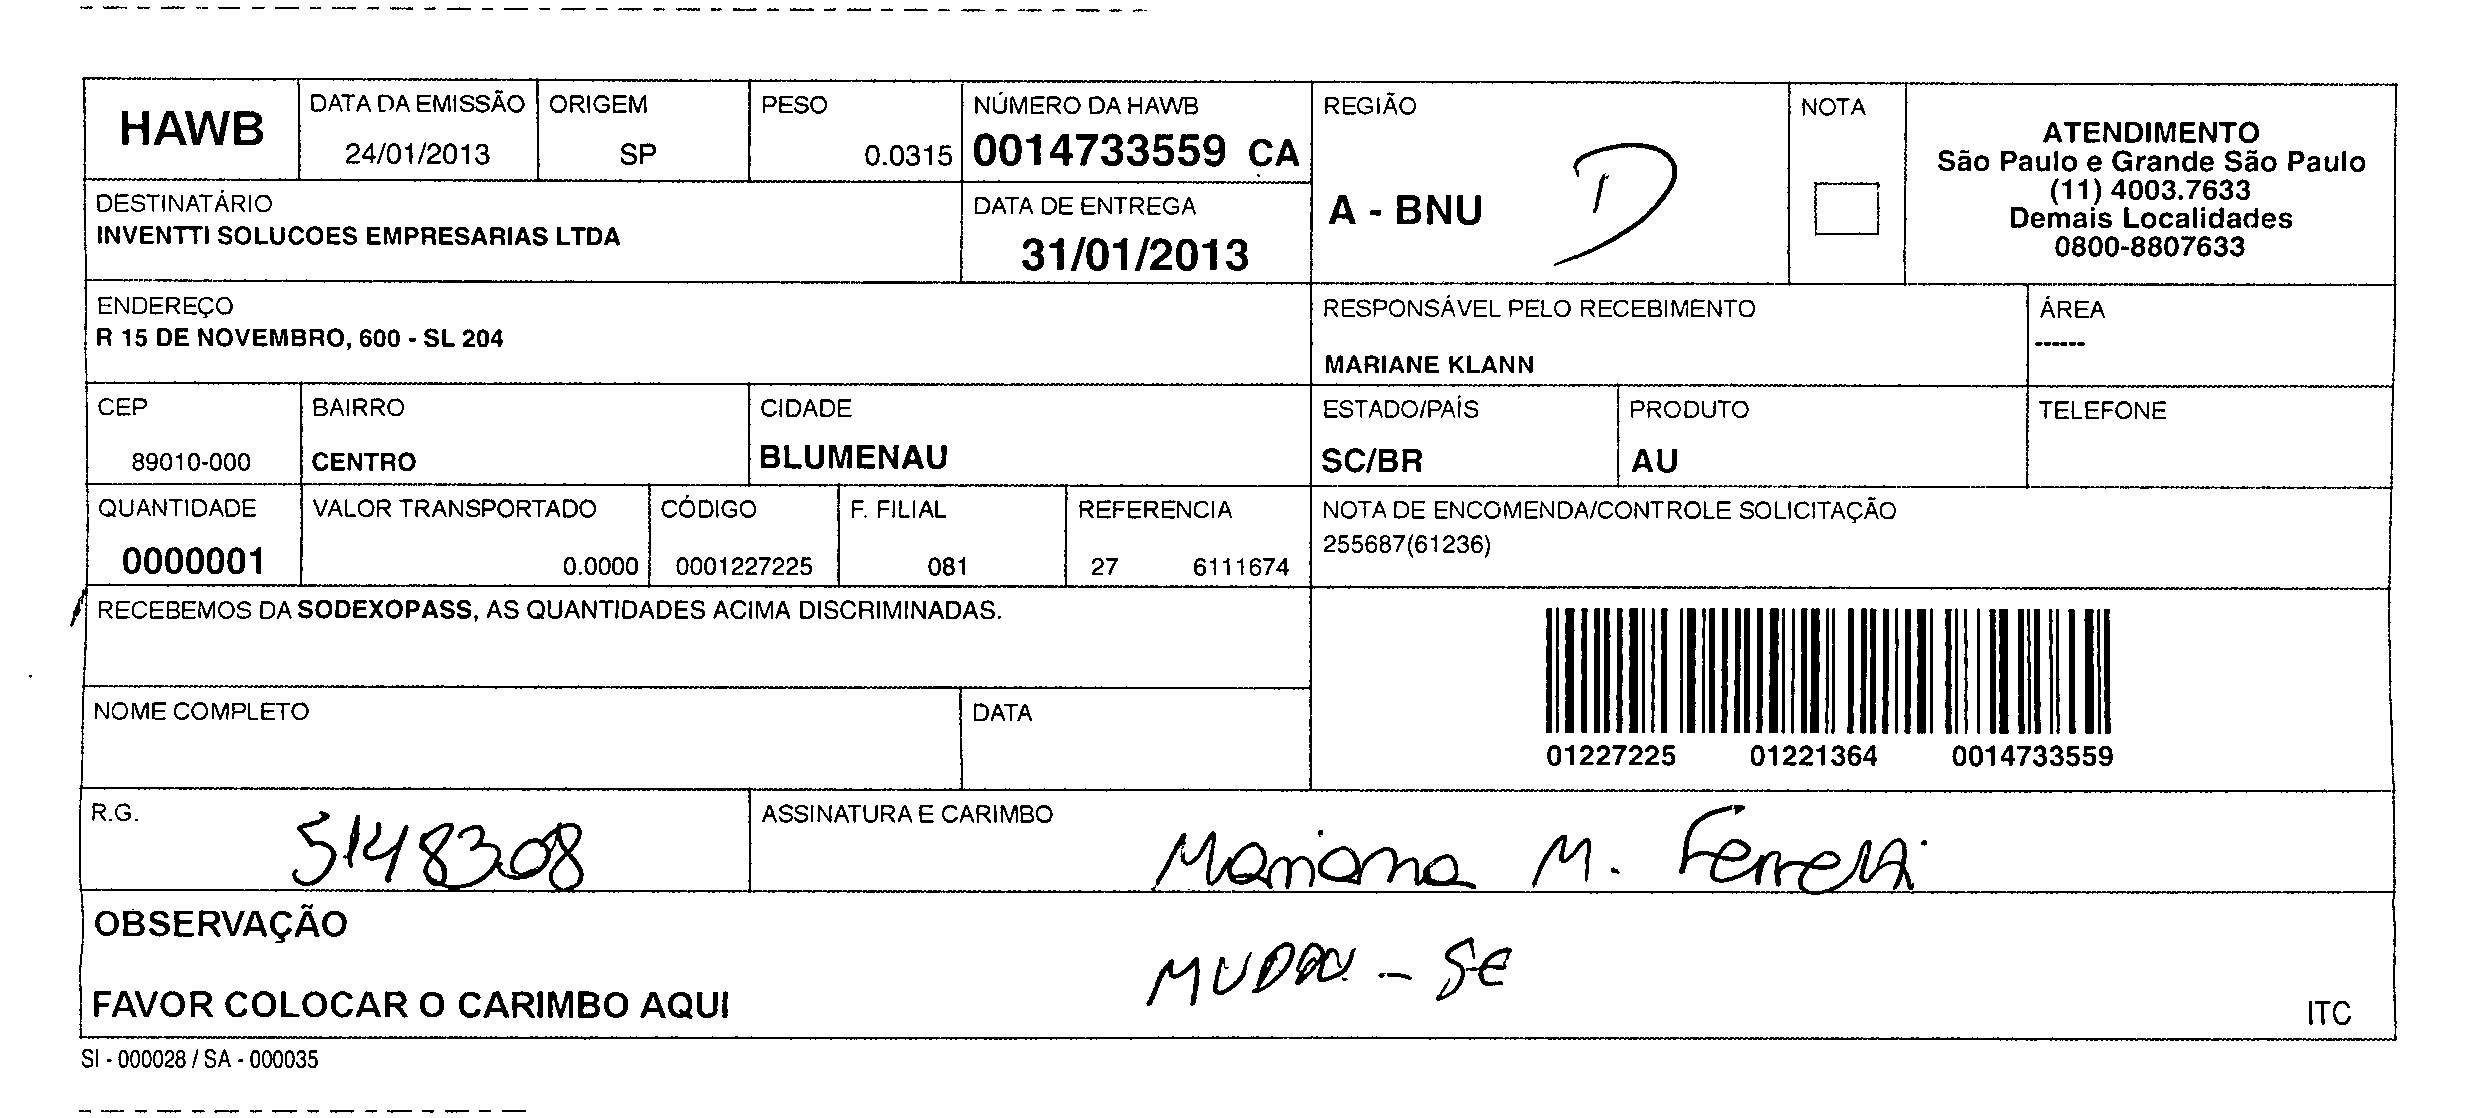 HAWB
DATA DA EMISSÃO
24/01/2013
ORIGEM
SP
PESO
0.0315
NÚMERO DA HAWB
0014733559 CA
REGIÃO
A - BNU
D
NOTA
ATENDIMENTO
São Paulo e Grande São Paulo
(11) 4003.7633
Demais Localidades
0800-8807633
DESTINATÁRIO
INVENTTI SOLUCOES EMPRESARIAS LTDA
DATA DE ENTREGA
31/01/2013
ENDEREÇO
R 15 DE NOVEMBRO, 600 - SL 204
RESPONSÁVEL PELO RECEBIMENTO
MARIANE KLANN
ÁREA
------
CEP
89010-000
BAIRRO
CENTRO
CIDADE
BLUMENAU
ESTADO/PAÍS
SC/BR
PRODUTO
AU
TELEFONE
QUANTIDADE
0000001
VALOR TRANSPORTADO
0.0000
CÓDIGO
0001227225
F. FILIAL
081
REFERENCIA
27 6111674
NOTA DE ENCOMENDA/CONTROLE SOLICITAÇÃO
255687(61236)
RECEBEMOS DA SODEXOPASS, AS QUANTIDADES ACIMA DISCRIMINADAS.
01227225 01221364 0014733559
NOME COMPLETO
DATA
R.G.
5148308
ASSINATURA E CARIMBO
Mariana M. Ferretti
OBSERVAÇÃO
MUDOU - SE
FAVOR COLOCAR O CARIMBO AQUI
ITC
SI - 000028 / SA - 000035